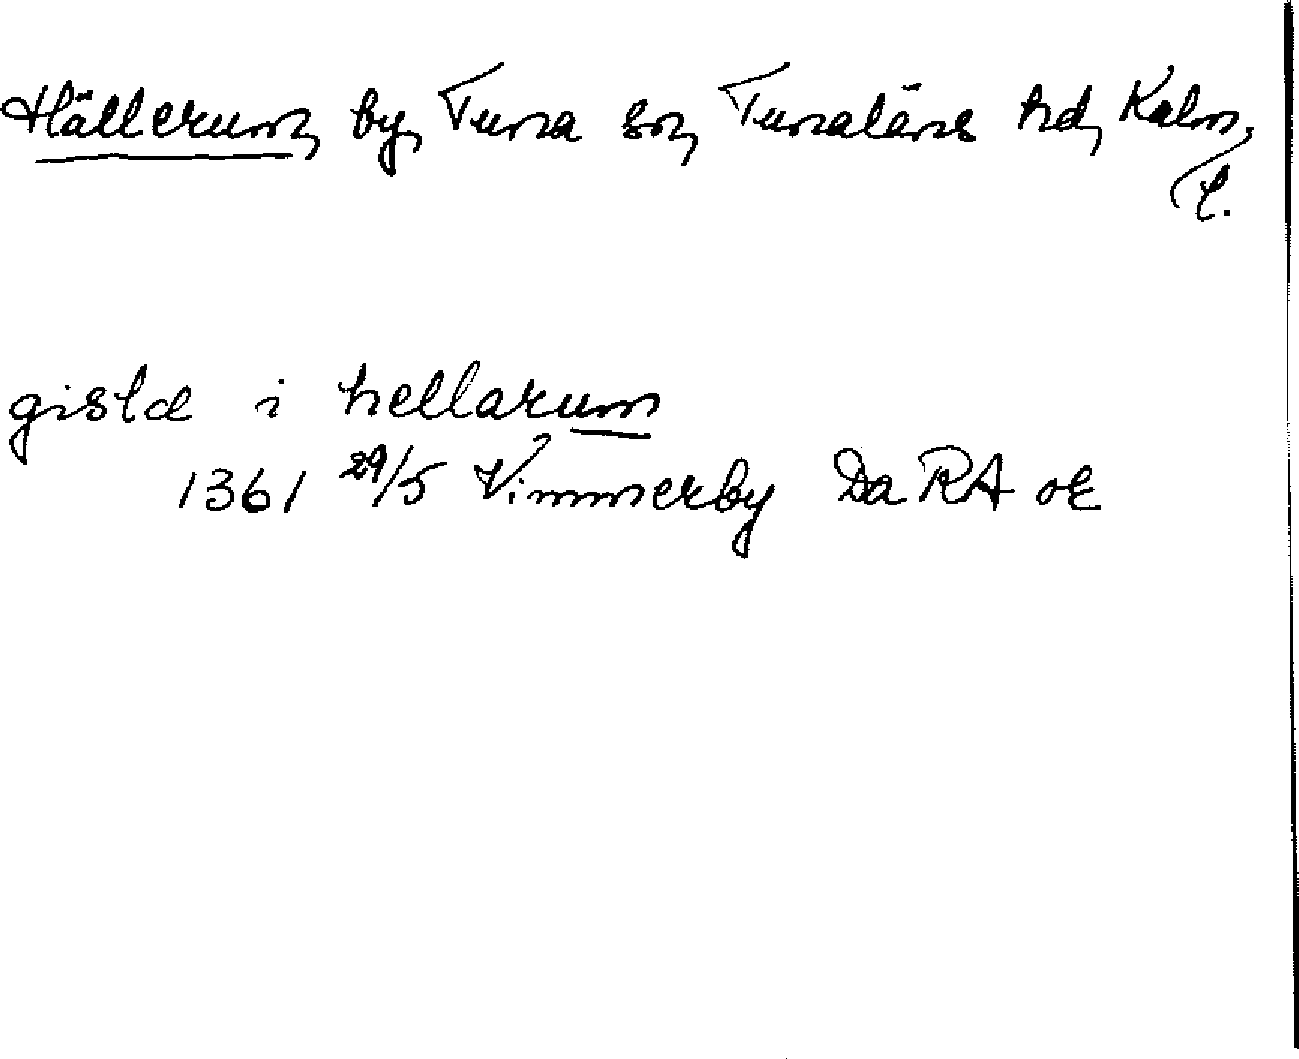 Hällerum, by, Tuna sn, Tunaläns hd, Kalm.
l.
gislæ i hellarum
1361 29/5 Vimmerby Da RA or